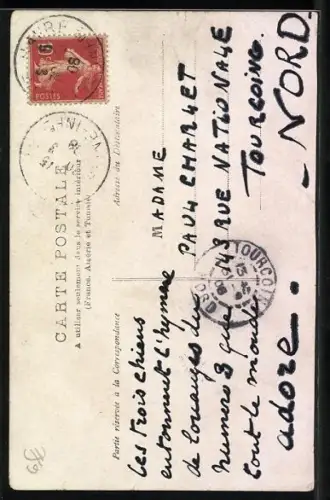 CARTE POSTALE
A utiliser seulement dans le service intérieur
(France, Algérie et Tunisie)
Partie réservée à la Correspondance
Adresse du Destinataire
Les trois chiens
entonnent l'hymne
de louanges du
numéro 3 que
tout le monde
adore.
MADAME
PAUL CHARLET
RUE NATIONALE
TOURCOING.
NORD
POSTES
TOURCOING
NORD